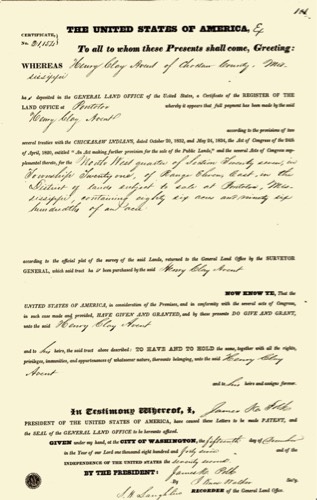 CERTIFICATE,
No.
THE UNITED STATES OF AMERICA,
To all to whom these Presents shall come, Greeting:
WHEREAS Henry Clay Avent of Choctaw County, Mis-
sissippi
ha s deposited in the GENERAL LAND OFFICE of the United States, a Certificate of the REGISTER OF THE
LAND OFFICE at Pontotoc whereby it appears that full payment has been made by the said
Henry Clay Avent
according to the provisions of two
several treaties with the CHICKASAW INDIANS, dated October 20, 1832, and May 24, 1834, the Act of Congress of the 24th
of April, 1820, entitled "An Act making further provision for the sale of the Public Lands," and the several Acts of Congress sup-
plemental thereto, for the North West quarter of Section Twenty seven, in
Township Twenty one, of Range Eleven, East, in the
District of lands subject to sale at Pontotoc, Mis-
sissippi, containing eighty six acres and ninety six
hundredths of an acre
according to the official plat of the survey of the said Lands, returned to the General Land Office by the SURVEYOR
GENERAL, which said tract has been purchased by the said Henry Clay Avent
NOW KNOW YE, That the
UNITED STATES OF AMERICA, in consideration of the Premises, and in conformity with the several acts of Congress,
in such case made and provided, HAVE GIVEN AND GRANTED, and by these presents DO GIVE AND GRANT,
unto the said Henry Clay Avent
and to his heirs, the said tract above described: TO HAVE AND TO HOLD the same, together with all the rights,
privileges, immunities, and appurtenances of whatsoever nature, thereunto belonging, unto the said Henry Clay
Avent
and to his heirs and assigns forever.
In Testimony Whereof, I, James K. Polk
PRESIDENT OF THE UNITED STATES OF AMERICA, have caused these Letters to be made PATENT,
and the SEAL of the GENERAL LAND OFFICE to be hereunto affixed.
GIVEN under my hand, at the CITY OF WASHINGTON, the fifteenth day of December
in the Year of our Lord one thousand eight hundred and forty six and of the
INDEPENDENCE OF THE UNITED STATES the seventy first
BY THE PRESIDENT: James K. Polk
By Walker Sec'y.
S. H. Laughlin RECORDER of the General Land Office.